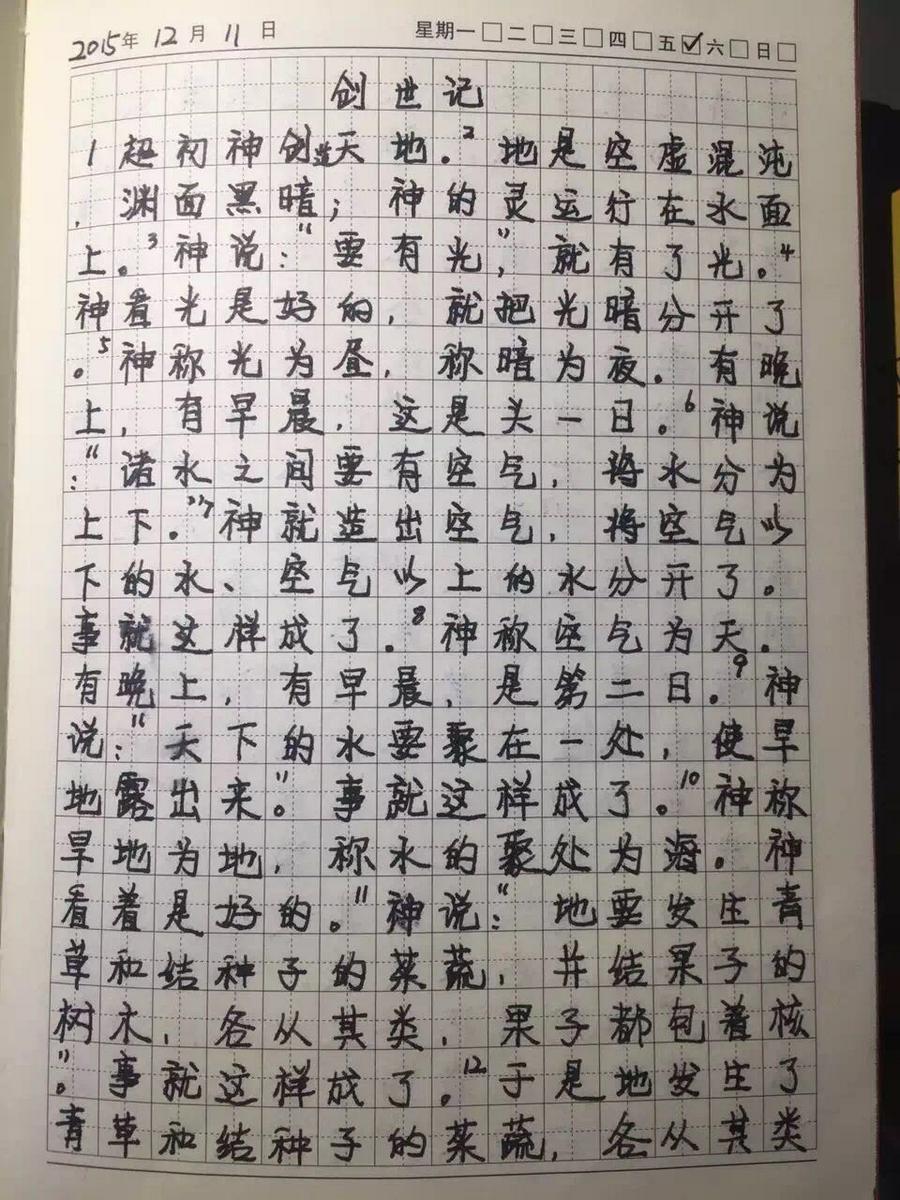 2015年 12月 11日 星期一□二□三□四□五☑六□日□
创世记
1起初神创造天地。2地是空虚混沌
，渊面黑暗；神的灵运行在水面
上。3神说：“要有光”，就有了光。4
神看光是好的，就把光暗分开了
。5神称光为昼，称暗为夜。有晚
上，有早晨，这是头一日。6神说
：“诸水之间要有空气，将水分为
上下。”7神就造出空气，将空气以
下的水、空气以上的水分开了。
事就这样成了。8神称空气为天。
有晚上，有早晨，是第二日。9神
说：“天下的水要聚在一处，使旱
地露出来”。事就这样成了。10神称
旱地为地，称水的聚处为海。神
看着是好的。11神说：“地要发生青
草和结种子的菜蔬，并结果子的
树木，各从其类，果子都包着核
”。事就这样成了。12于是地发生了
青草和结种子的菜蔬，各从其类